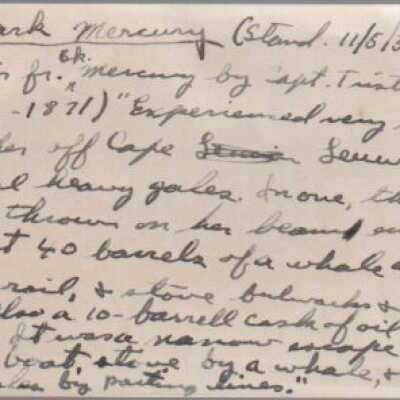 ark Mercury (Stand. 11/5/3
fr. Bk. Mercury by Capt. Trist
-1871) "Experienced very
off Cape Leuw
heavy gales. In one, th
thrown on her beam en
t 40 barrels of a whale
rail, & stove bulwarks &
also a 10-barrell cask of oil
It was a narrow escape
boat, stove by a whale, &
by parting lines."